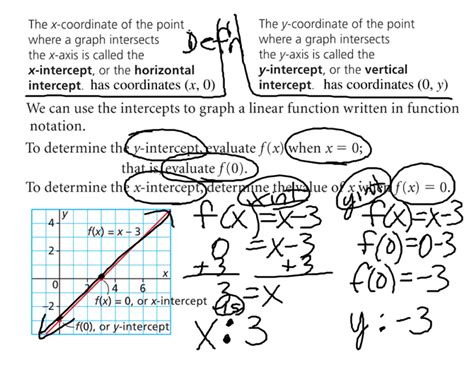 The x-coordinate of the point
where a graph intersects
the x-axis is called the
x-intercept, or the horizontal
intercept. has coordinates (x, 0)
Defn
The y-coordinate of the point
where a graph intersects
the y-axis is called the
y-intercept, or the vertical
intercept. has coordinates (0, y)
We can use the intercepts to graph a linear function written in function
notation.
To determine the y-intercept, evaluate f(x) when x = 0;
that is, evaluate f(0).
To determine the x-intercept, determine the value of x when f(x) = 0.
y
4
2
0
4
6
x
-2
f(x) = x − 3
f(x) = 0, or x-intercept
f(0), or y-intercept
xint
f(x)=x-3
0 =x-3
+3 +3
3=x
is
x: 3
yint
f(x)=x-3
f(0)=0-3
f(0)=-3
y: -3